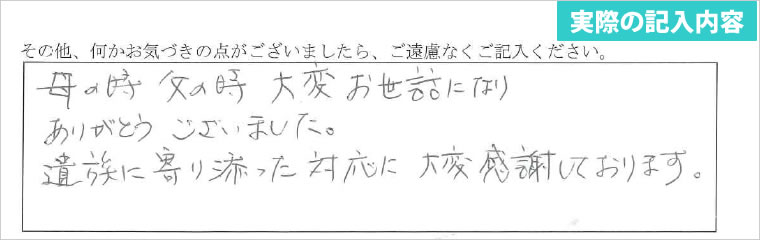 実際の記入内容
その他、何かお気づきの点がございましたら、ご遠慮なくご記入ください。
母の時 父の時 大変お世話になり
ありがとうございました。
遺族に寄り添った対応に大変感謝しております。